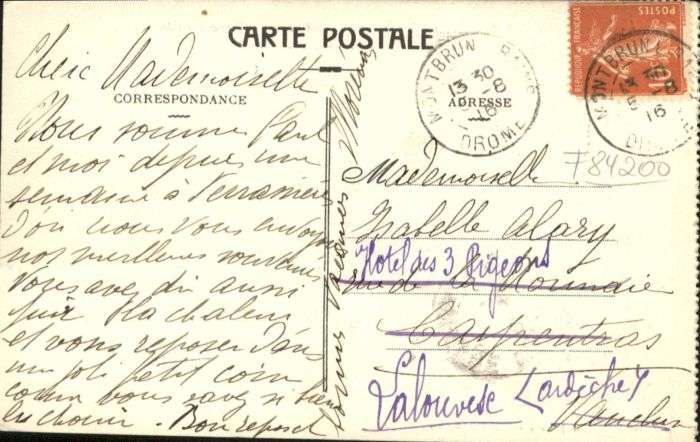 CARTE POSTALE
CORRESPONDANCE
ADRESSE
Chère Mademoiselle
Nous somme Paul
et moi depuis une
semaine à
d'où nous vous envoyons
nos meilleurs souvenirs
Vous avez dû aussi
fuir la chaleur
et vous reposer dans
un joli petit coin
comme vous savez si bien
les choisir. Bon repos et
bonnes vacances
MONTBRUN BAINS
13 30
8
16
DROME
POSTES
FRANÇAISE
MONTBRUN
13 30
16
F84200
Mademoiselle
Isabelle Alary
Hotel des 3 Pigeons
rue de la Monnaie
Carpentras
Lalouvesc (Ardèche)
Vaucluse